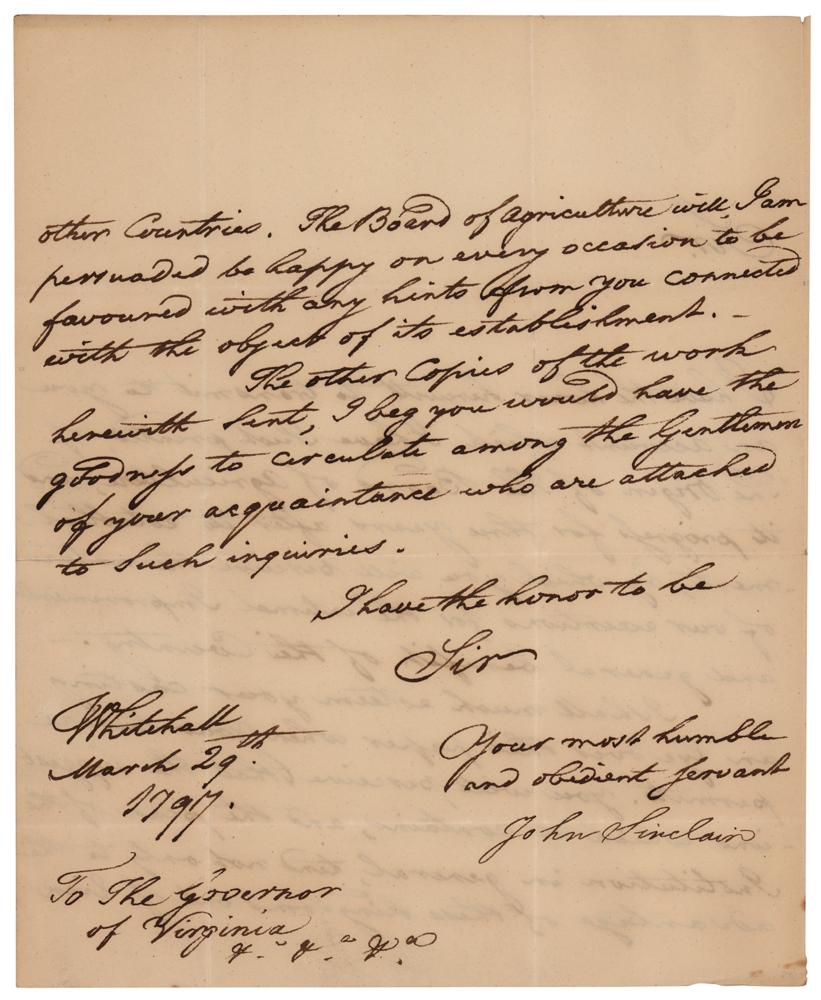 other Countries. The Board of Agriculture will, I am
persuaded be happy on every occasion to be
favoured with any hints from you connected
with the object of its establishment. –
The other Copies of the work
herewith Sent, I beg you would have the
goodness to circulate among the Gentlemen
of your acquaintance who are attached
to Such inquiries.
I have the honor to be
Sir
Whitehall
March 29.th
1797.
Your most humble
and obedient servant
John Sinclair
To The Governor
of Virginia
&.a &.a &.a